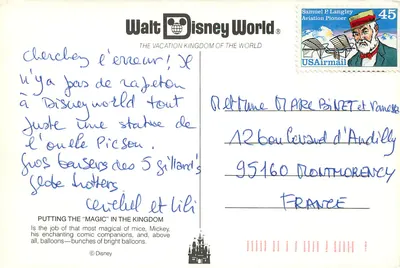 Walt Disney World®
THE VACATION KINGDOM OF THE WORLD
Samuel P. Langley
Aviation Pioneer
45
USAirmail
Cherchez l'erreur! Je
n'y a pas de
à Disneyworld tout
juste une statue de
l'oncle Picsou.
Gros baisers des 5
globe trotters
et Lili
PUTTING THE "MAGIC" IN THE KINGDOM
Is the job of that most magical of mice, Mickey,
his enchanting comic companions, and, above
all, balloons—bunches of bright balloons.
© Disney
Mr et Mme MARC BINET et Vanessa
12 boulevard d'Andilly
95160 MONTMORENCY
FRANCE